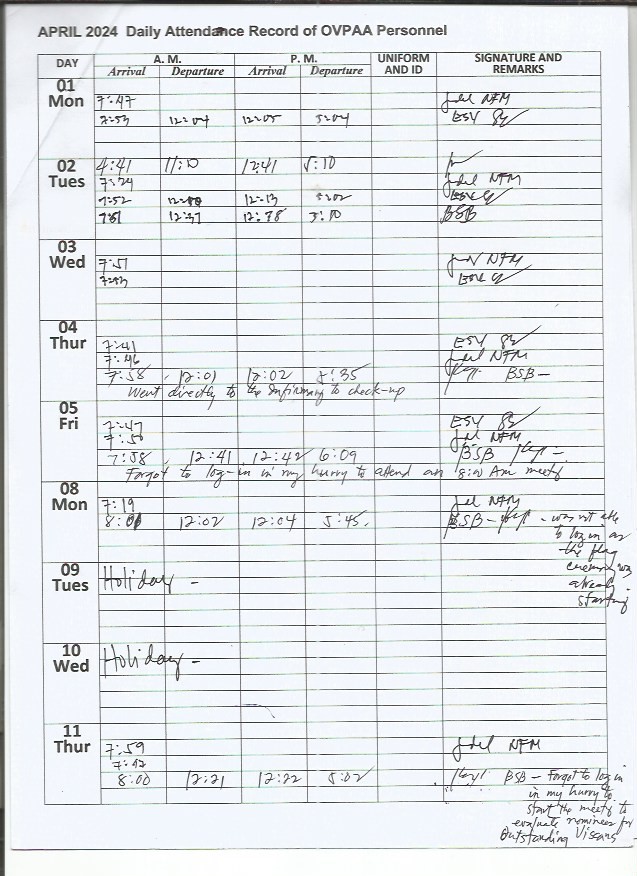 APRIL 2024 Daily Attendance Record of OVPAA Personnel
DAY A. M. P. M. UNIFORM AND ID SIGNATURE AND REMARKS
Arrival Departure Arrival Departure
01 Mon
7:47 NFM
7:53 12:04 12:05 5:04 ESY
02 Tues
4:41 11:10 12:41 5:10
7:29 NFM
7:52 12:13 5:02
12:37 12:38 5:10 BSB
03 Wed
7:51 NFM
7:53
04 Thur
7:41 ESY
7:46 NFM
7:58 12:01 12:02 5:35 BSB -
Went directly to the Infirmary to check-up
05 Fri
7:47 ESY
7:50 NFM
7:58 12:41 12:42 6:09 BSB
Forgot to log-in in my hurry to attend an 8:00 Am meeting
08 Mon
7:19 NFM
8:01 12:02 12:04 5:45. BSB - was not able
to log in as
the flag
ceremony was
already
starting
09 Tues
Holiday -
10 Wed
Holiday -
11 Thur
7:59 NFM
7:42
8:00 12:21 12:22 5:02 BSB - Forgot to log in
in my hurry to
start the meetg to
evaluate nominees for
Outstanding Viscans